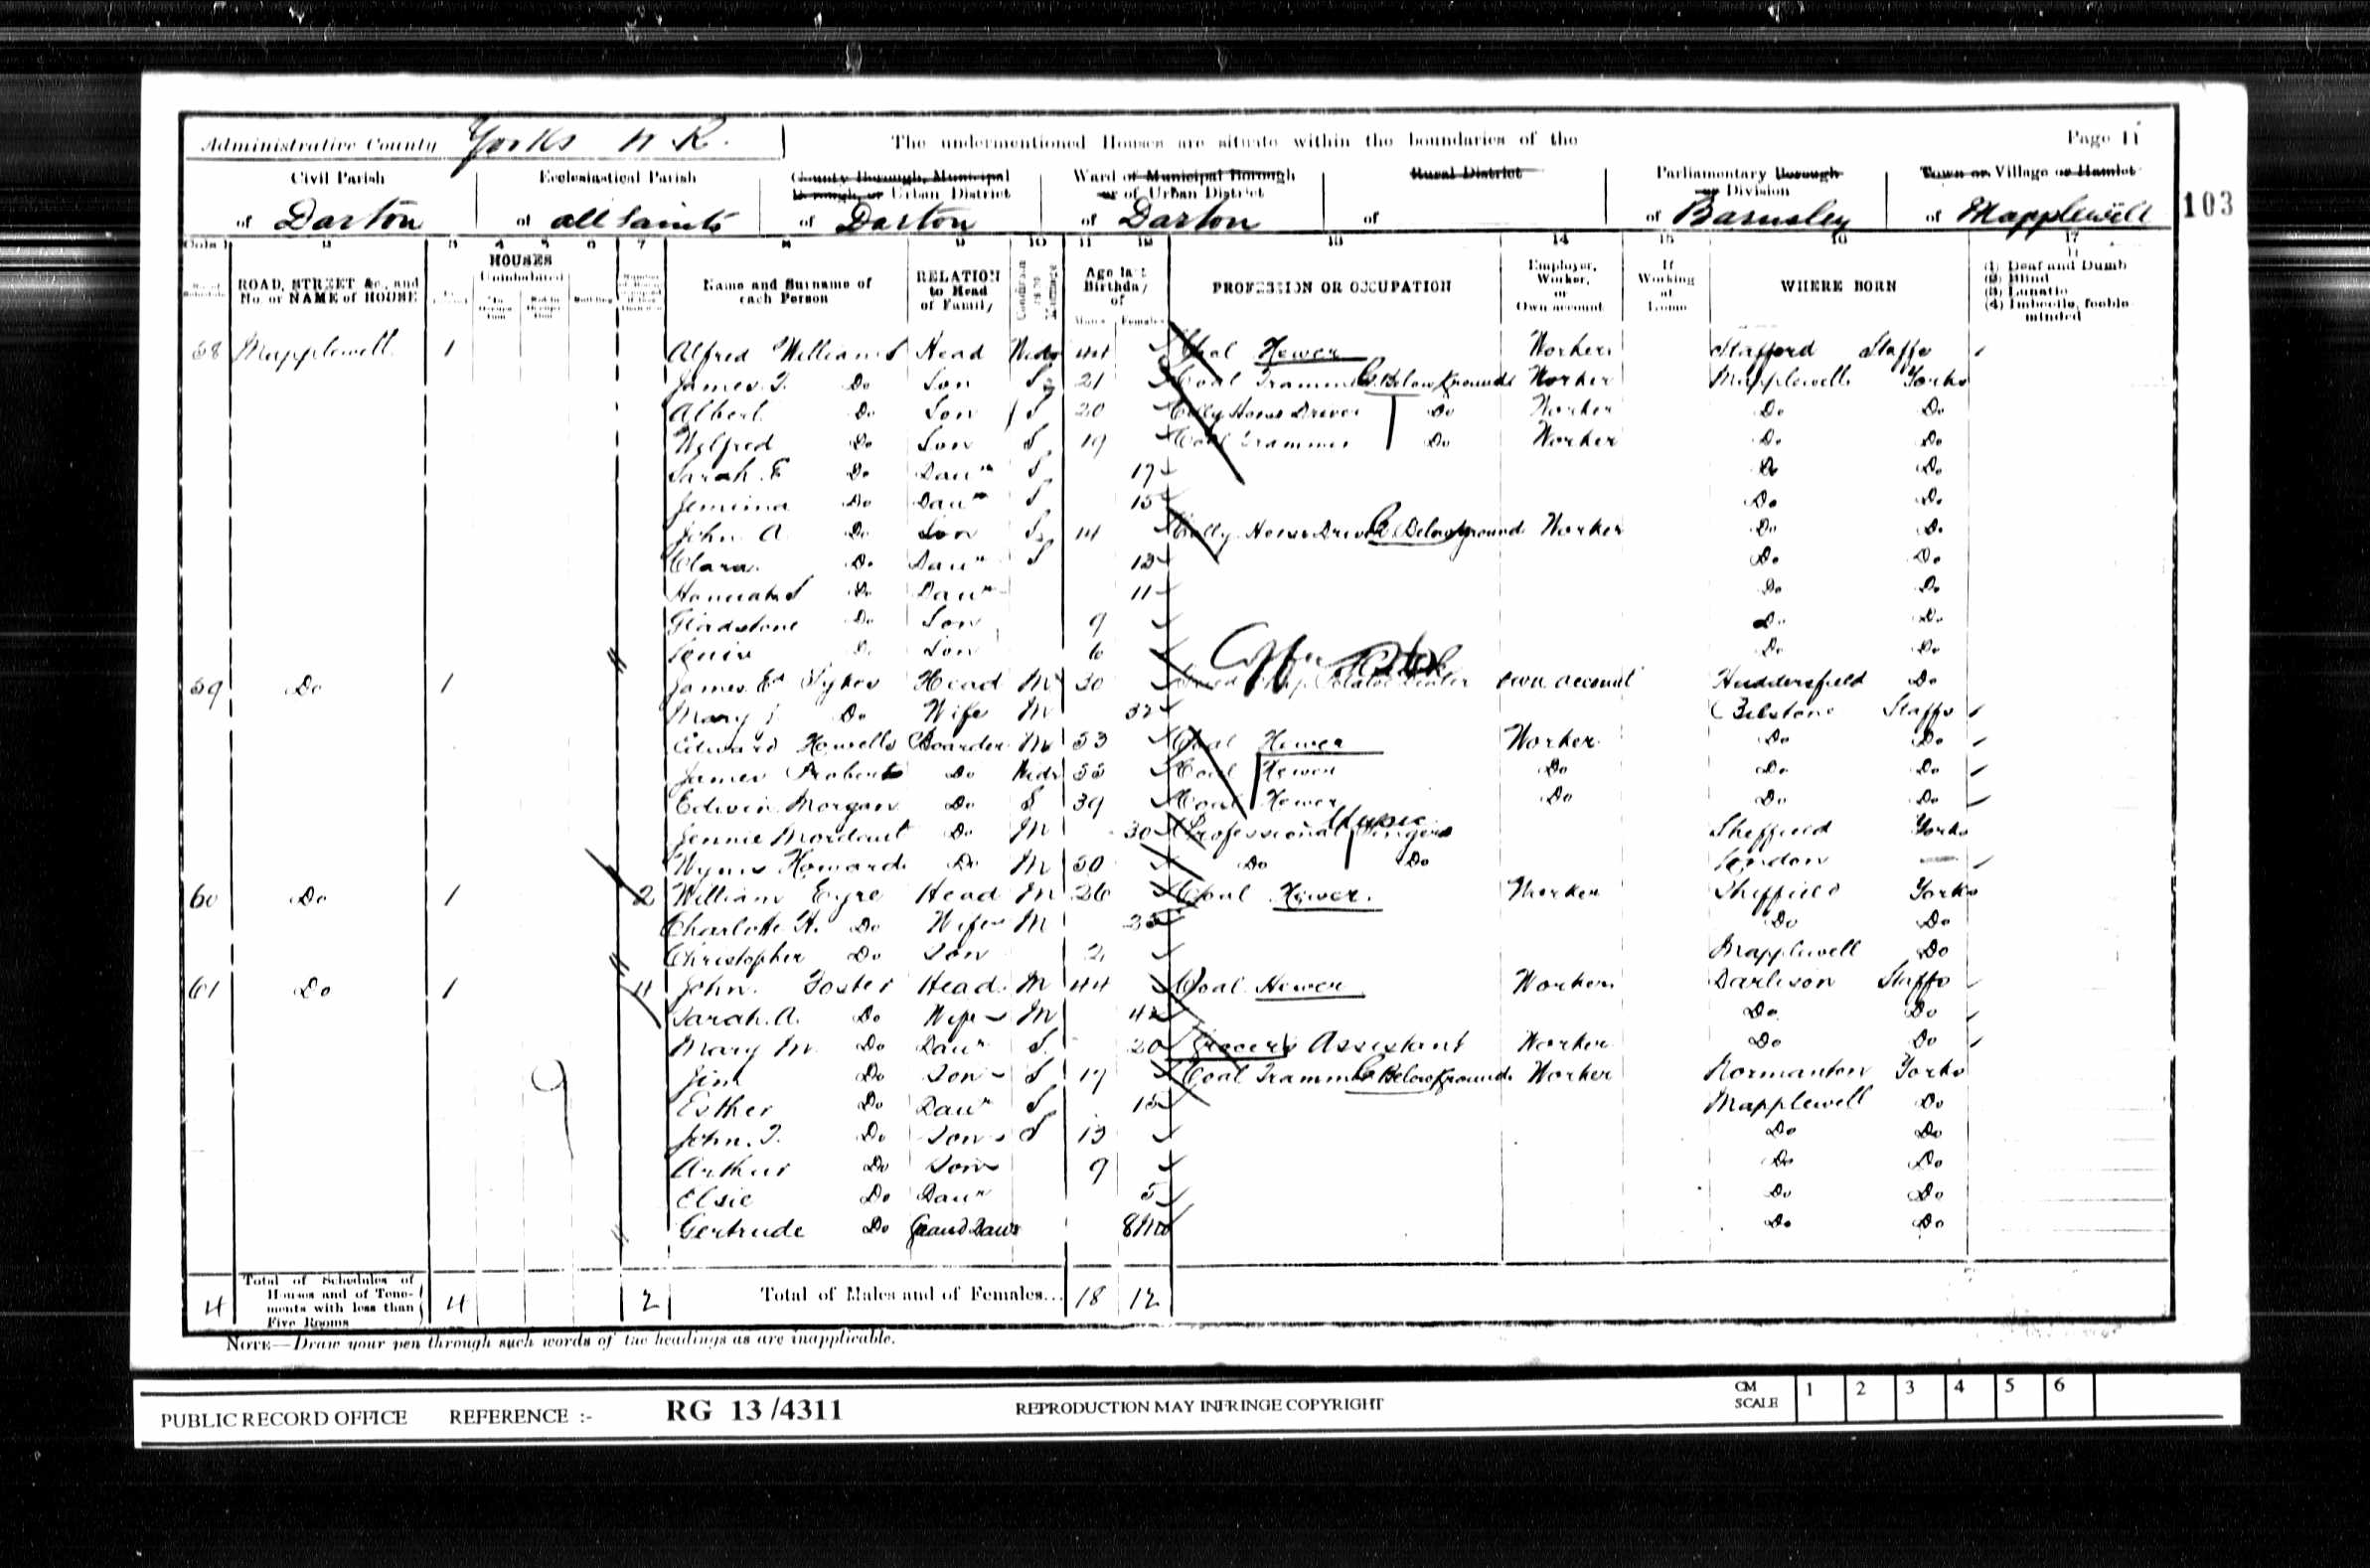 Administrative County Yorks W R. The undermentioned Houses are situate within the boundaries of the Page 11
Civil Parish Ecclesiastical Parish County Borough, Municipal Borough, or Urban District Ward of Municipal Borough or of Urban District Rural District Parliamentary Borough or Division Town or Village or Hamlet
of Darton of All Saints of Darton of Darton of of Barnsley of Mapplewell 103
1 2 3 4 5 6 7 8 9 10 11 12 13 14 15 16 17
ROAD, STREET &c., and No. or NAME of HOUSE HOUSES Uninhabited Building Name and Surname of each Person RELATION to Head of Family Condition as to Marriage Age last Birthday of Males Females PROFESSION OR OCCUPATION Employer, Worker, or Own account If Working at Home WHERE BORN (1) Deaf and Dumb (2) Blind (3) Lunatic (4) Imbecile, feeble minded
58 Mapplewell 1 Alfred Williams Head Widr 44 Coal Hewer Worker Stafford Staffs
James T. Do Son S 21 Coal Trammer Below ground Worker Mapplewell Yorks
Albert Do Son S 20 Horse Driver Do Worker Do Do
Wilfred Do Son S 19 Coal Trammer Do Worker Do Do
Sarah E Do Daur S 17 Do Do
Jemima Do Daur S 15 Do Do
John A. Do Son S 14 Horse Driver Below ground Worker Do Do
Clara Do Daur S 13 Do Do
Do Daur 11 Do Do
Gladstone Do Son 9 Do Do
Do Son 6 Do Do
59 Do 1 James Ed Sykes Head M 30 Potatoe Dealer own account Huddersfield Do
Mary Do Wife M Bilston Staffs
Edward Howells Boarder M 53 Coal Hewer Worker Do Do
James Do Widr 55 Coal Hewer Do Do Do
Edwin Morgan Do S 39 Coal Hewer Do Do Do
Jennie Mordaunt Do M 30 Professional Singer Music Sheffield Yorks
Howard Do M 50 Do Do London
60 Do 1 2 William Eyre Head M 26 Coal Hewer. Worker Sheffield Yorks
Charlotte H. Do Wife M Do Do
Christopher Do Son 2 Mapplewell Do
61 Do 1 4 John Foster Head M 44 Coal Hewer Worker Darlison Staffs
Sarah. A. Do Wife M 42 Do Do
Mary M. Do Daur S. 20 Grocer's Assistant Worker Do Do
Jim Do Son S 17 Coal Trammer Below ground Worker Normanton Yorks
Esther Do Daur S 15 Mapplewell Do
John. T. Do Son S 13 Do Do
Arthur Do Son 9 Do Do
Elsie Do Daur 5 Do Do
Gertrude Do Grand Daur 8 Mo Do Do
4 Total of Schedules of Houses and of Tenements with less than Five Rooms 4 2 Total of Males and of Females... 18 12
NOTE—Draw your pen through such words of the headings as are inapplicable.
PUBLIC RECORD OFFICE REFERENCE :- RG 13/4311 REPRODUCTION MAY INFRINGE COPYRIGHT CM SCALE 1 2 3 4 5 6